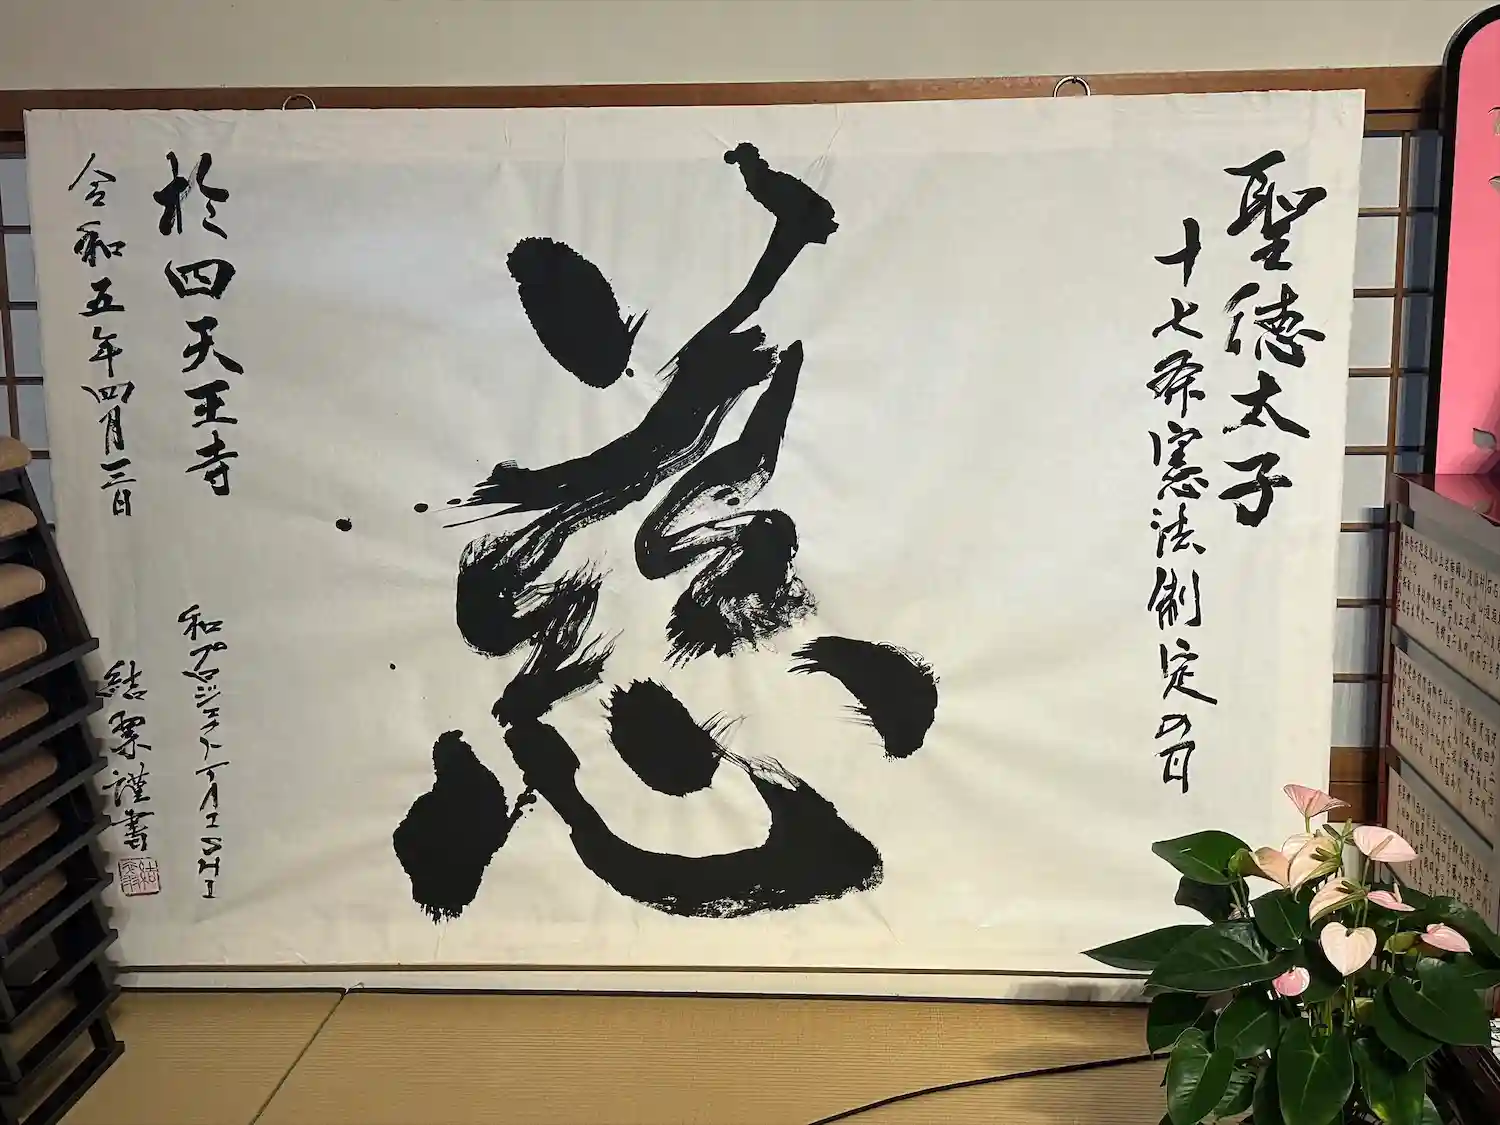 聖徳太子
十七条憲法制定の日
慈
於四天王寺
和プロジェクトTAISHI
令和五年四月三日
結翠謹書